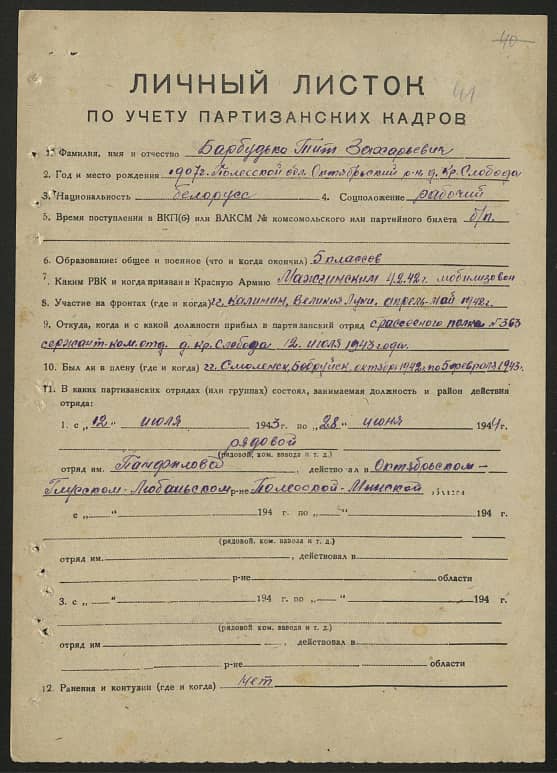 40
41
ЛИЧНЫЙ ЛИСТОК
ПО УЧЕТУ ПАРТИЗАНСКИХ КАДРОВ
1. Фамилия, имя и отчество Барбудько Тит Захарьевич
2. Год и место рождения 1907г. Полесской обл. Октябрьский р-н д. Кр. Слобода
3. Национальность белорусс 4. Соцположение рабочий
5. Время поступления в ВКП(б) или ВЛКСМ № комсомольского или партийного билета б/п.
6. Образование: общее и военное (что и когда окончил) 5 классов
7. Каким РВК и когда призван в Красную Армию 4.2.42г. мобилизован
8. Участие на фронтах (где и когда) гг. Калинин, Великия Луки, апрель-май 1942г.
9. Откуда, когда и с какой должности прибыл в партизанский отряд с полка №363
сержант-ком.отд. д. Кр. Слобода 12 июля 1943 года.
10. Был ли в плену (где и когда) гг. Смоленск, Бобруйск, октябрь 1942г. по 5 февраля 1943г.
11. В каких партизанских отрядах (или группах) состоял, занимаемая должность и район действия
отряда:
1. с „12" июля 1943 г. по „28" июня 1944 г.
рядовой
(рядовой, ком. взвода и т. д.)
отряд им. Панфилова, действовал в Октябрьском-
Глусском-Любаньском р-не Полесской-Минской области
с „ " 194 г. по „ " 194 г.
(рядовой, ком. взвода и т. д.)
отряд им. , действовал в
р-не области
3. с „ " 194 г. по „ " 194 г.
(рядовой, ком. взвода и т. д.)
отряд им , действовал в
р-не области
12. Ранения и контузии (где и когда) нет